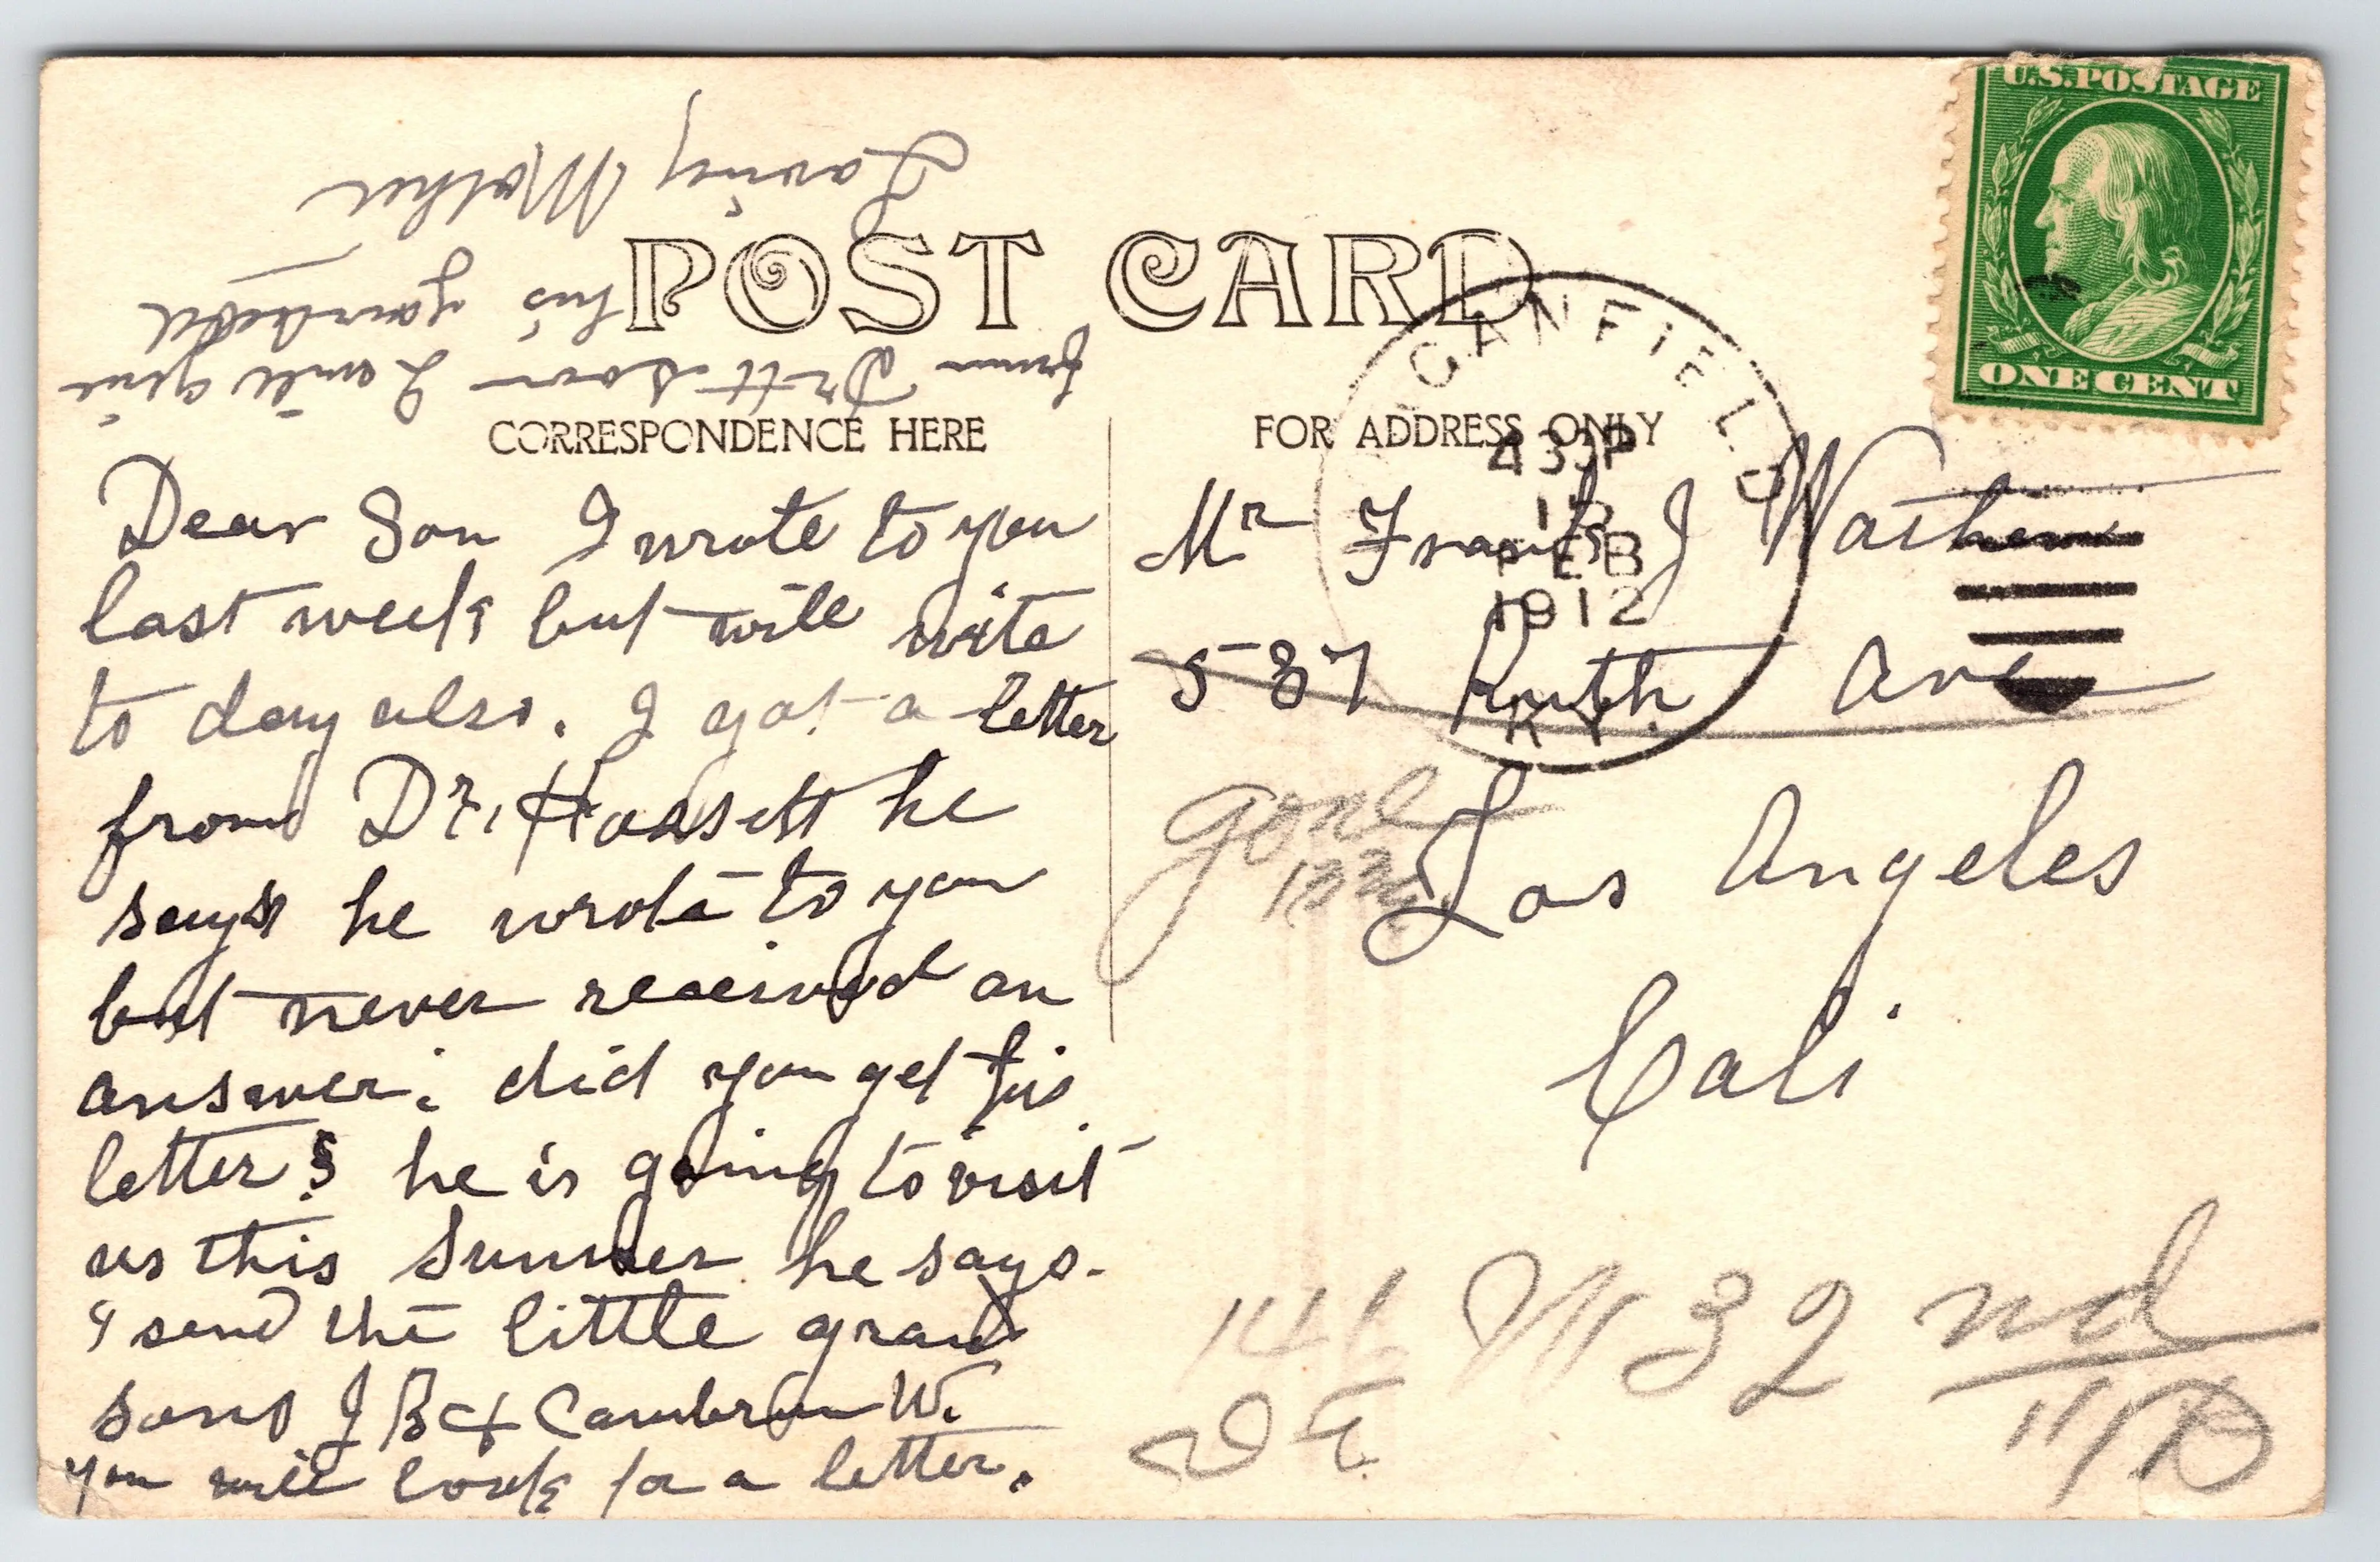 U.S. POSTAGE
ONE CENT
POST CARD
CANFIELD
430P
FEB
1912
KY.
CORRESPONDENCE HERE
FOR ADDRESS ONLY
Dear Son I wrote to you
last week but will write
to day also. I got a letter
from Dr. he
says he wrote to you
but never received an
answer; did you get his
letter? he is going to visit
us this Summer he says.
I send the little grand
sons J B & W.
You will look for a letter.
from soon I will give
his
Loving Mother
Mr Frank J
587 Ruth Ave
Los Angeles
Cali
gone
146 W 32 nd